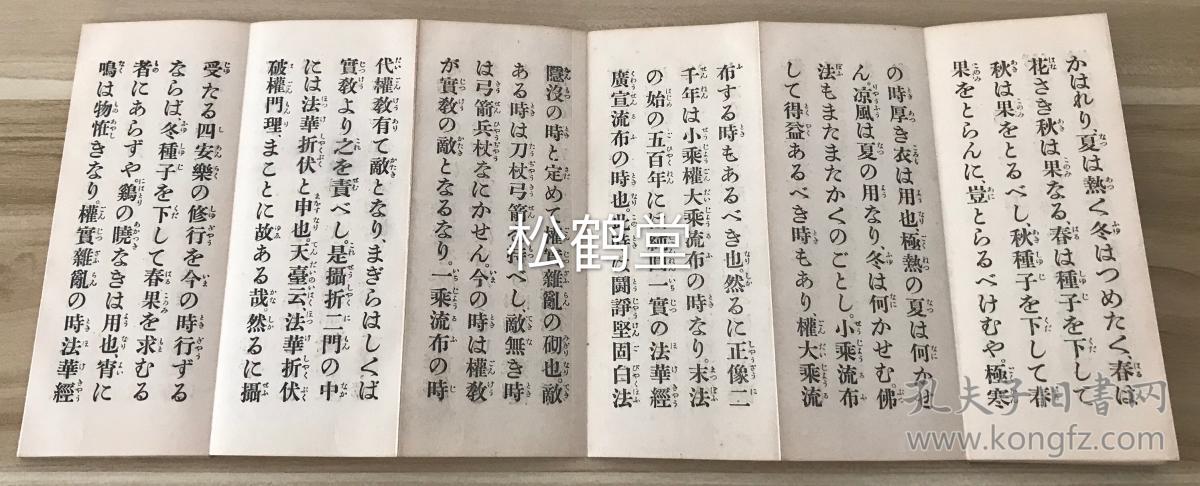 かはれり、夏は熱く冬はつめたく、春は
花さき秋は果なる、春は種子を下して
秋は果をとるべし、秋種子を下して春
果をとらんに、豈とらるべけむや。極寒
の時厚き衣は用也、極熱の夏は何かせ
ん、凉風は夏の用なり、冬は何かせむ。佛
法もまたまたかくのごとし。小乘流布
して得益あるべき時もあり、權大乘流
布する時もあるべき也。然るに正像二
千年は小乘權大乘流布の時なり。末法
の始の五百年には純圓一實の法華經
廣宣流布の時也。此時は鬪諍堅固白法
隱沒の時と定めて權實雜亂の砌也。敵
ある時は刀杖弓箭を持べし、敵無き時
は弓箭兵杖なにかせん。今の時は權敎
が實敎の敵となるなり。一乘流布の時
代權敎有て敵となり、まぎらはしくば
實敎より之を責べし。是攝折二門の中
には法華折伏と申也。天臺云法華折伏
破權門理、まことに故ある哉。然るに攝
受たる四安樂の修行を今の時行ずる
ならば、冬種子を下して春果を求むる
者にあらずや。鷄の曉なきは用也、宵に
鳴は物恠きなり。權實雜亂の時法華經
松鹤堂
孔夫子旧书网
www.kongfz.com